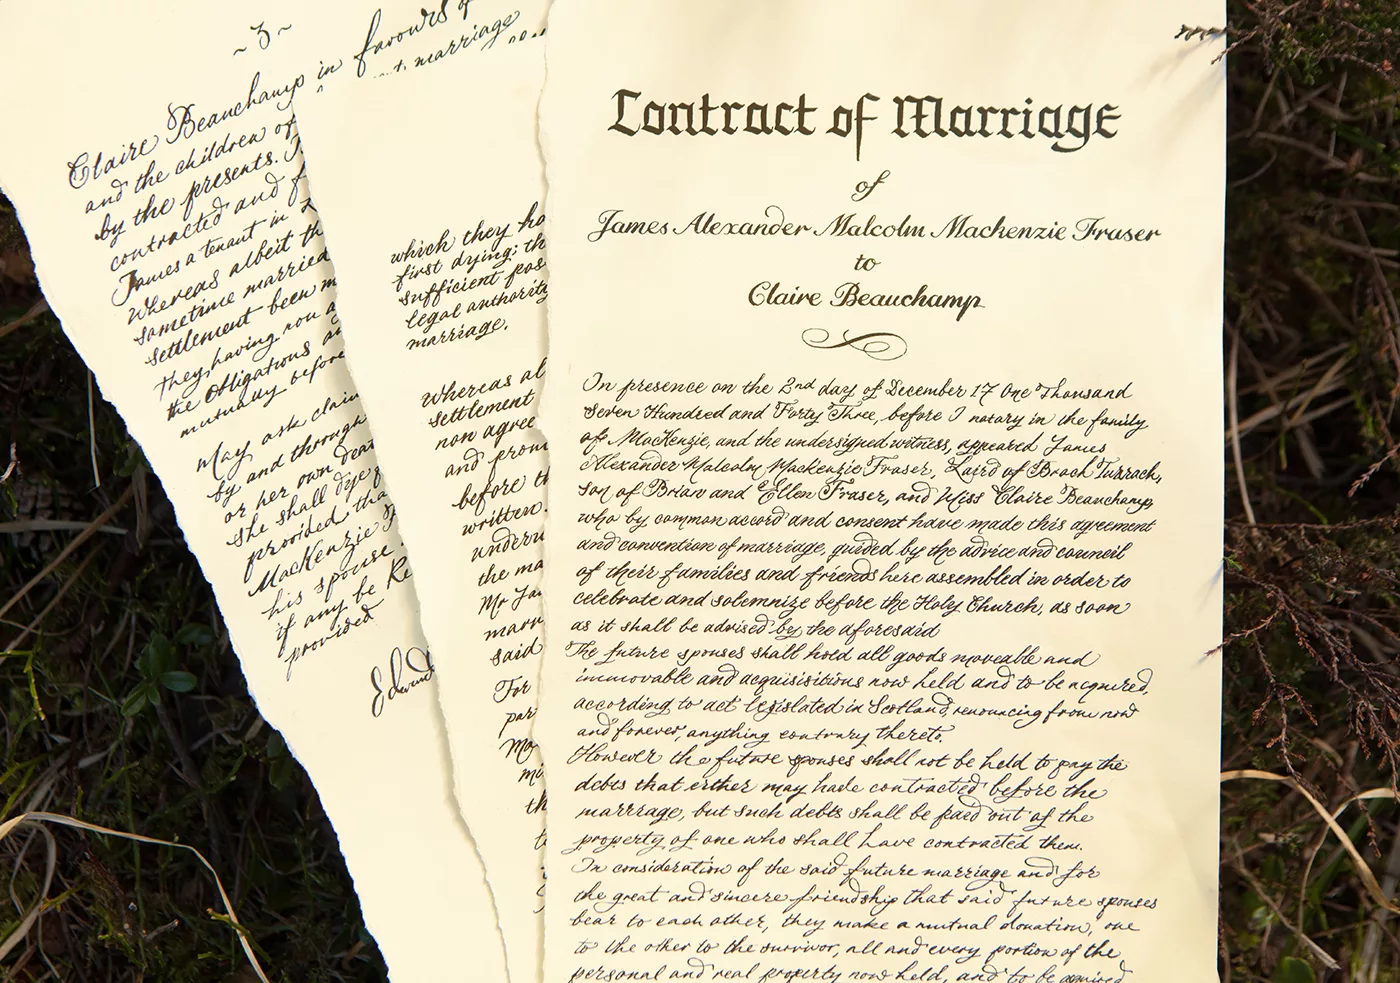 ~3~
Claire Beauchamp in favours of
and the children of marriage
by the presents.
contracted and
James a tenant in
Whereas albeit th
sometime married
settlement been m
they having you a
the obligations an
mutually before
May ask claim
by and through
or her own deat
she shall dye
provided tha
MacKenzie F
his spouse
if any be Re
provided
Edward
which they ha
first dying; th
sufficient pos
legal authority
marriage.
Whereas al
settlement
non agree
and prom
before th
written.
underw
the ma
Mr Ja
marr
said
For
par
Ma
mi
th
Contract of Marriage
of
James Alexander Malcolm Mackenzie Fraser
to
Claire Beauchamp
In presence on the 2nd day of December 17 One Thousand
Seven Hundred and Forty Three, before I notary in the family
of MacKenzie, and the undersigned witness, appeared James
Alexander Malcolm Mackenzie Fraser, Laird of Broch Turrach,
son of Brian and Ellen Fraser, and Miss Claire Beauchamp,
who by common accord and consent have made this agreement
and convention of marriage, guided by the advice and council
of their families and friends here assembled in order to
celebrate and solemnize before the Holy Church, as soon
as it shall be advised by the aforesaid
The future spouses shall hold all goods moveable and
immovable and acquisisitions now held and to be acquired,
according to act legislated in Scotland, renouncing from now
and forever, anything contrary thereto.
However the future spouses shall not be held to pay the
debts that either may hade contracted before the
marrrage, but such debts shall be paid out of the
property of one who shall have contracted them.
In consideration of the said future marriage and for
the great and sincere friendship that said future spouses
bear to each other, they make a mutual donation, one
to the other to the survivor, all and every portion of the
personal and real property now held, and to be acquired